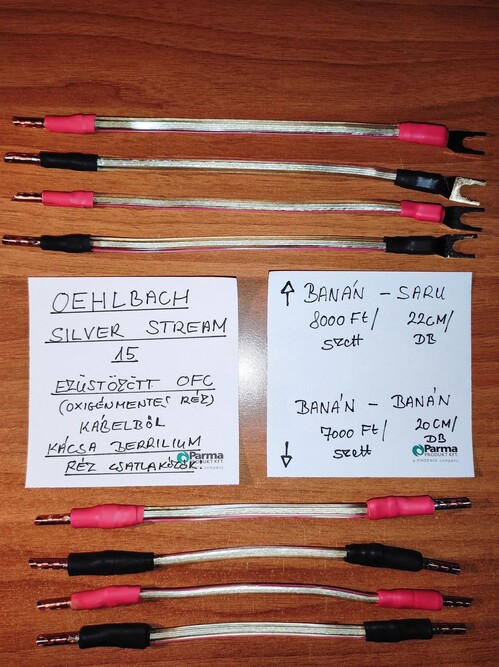 OEHLBACH
SILVER STREAM
15
EZÜSTÖZÖTT OFC
(OXIGÉNMENTES RÉZ)
KÁBELBŐL
KÁCSA BERRILIUM
RÉZ CSATLAKOZÓK
Parma
PRODUKT KFT.
a PHOENIX company
↑ BANÁN – SARU
8000 Ft/ 22CM/
szett DB
BANÁN – BANÁN
7000 Ft/ 20CM/
szett DB
↓
Parma
PRODUKT KFT.
a PHOENIX company